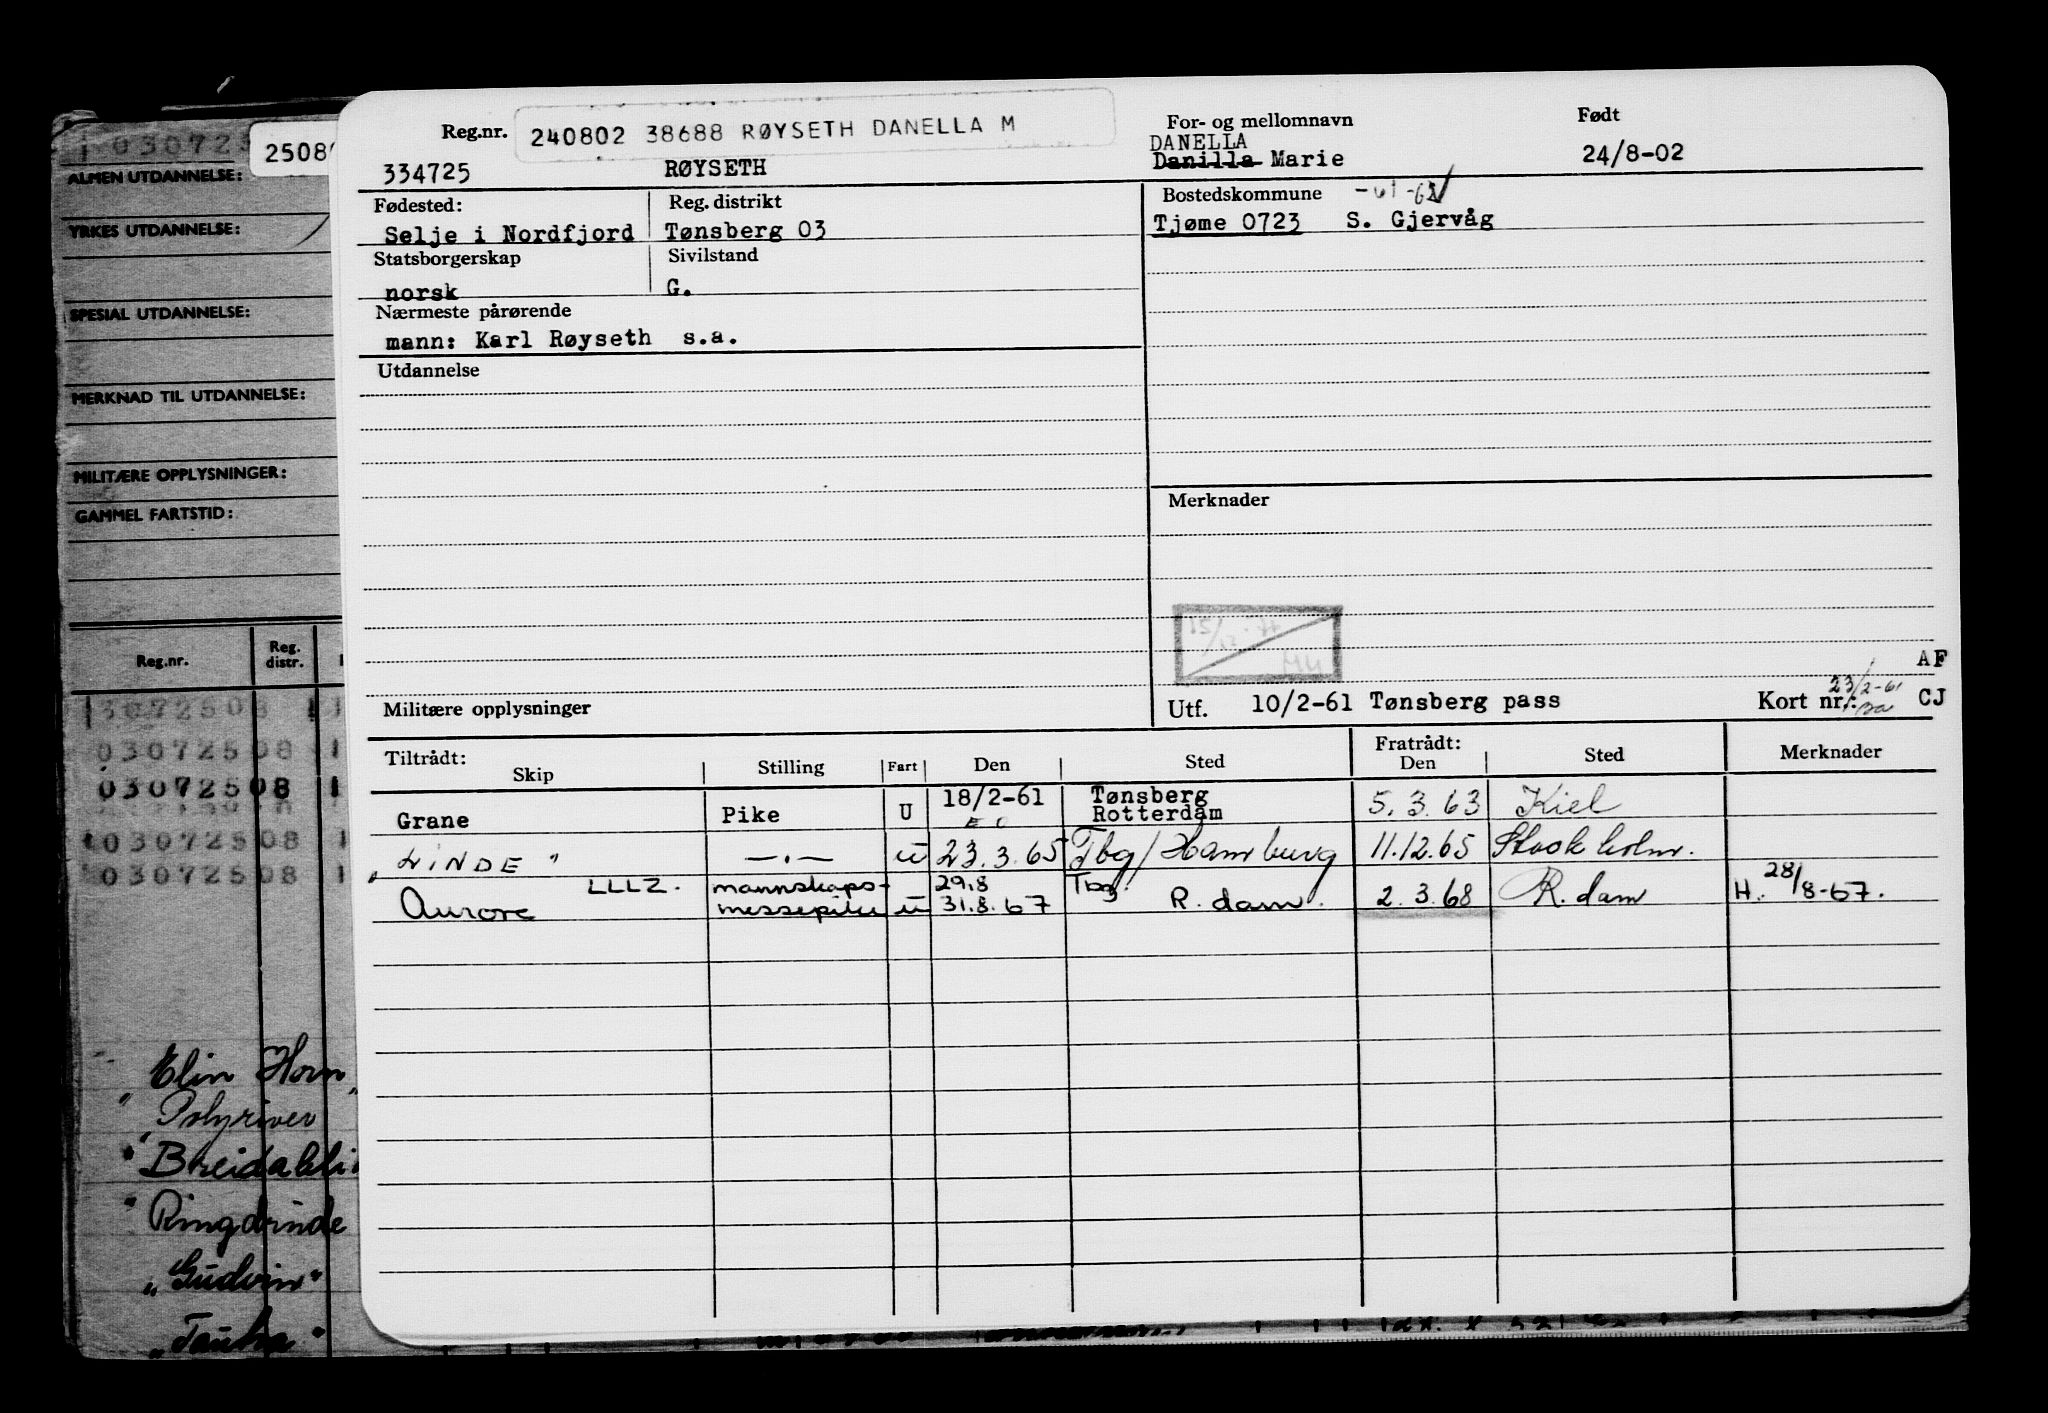 030725
25080
ALMEN UTDANNELSE:
YRKES UTDANNELSE:
SPESIAL UTDANNELSE:
MERKNAD TIL UTDANNELSE:
MILITÆRE OPPLYSNINGER:
GAMMEL FARTSTID:
Reg.nr. Reg. distr.
3072508 1
03072508 1
03072508 1
03072508 1
03072508 1
Elin Horn
" Polyriver
" Breidabli
" Ringdrinde
"Gudvin"
"Tauha"
Reg.nr. 240802 38688 RØYSETH DANELLA M
334725 RØYSETH
For- og mellomnavn Født
DANELLA
Danilla Marie 24/8-02
Fødested: Reg. distrikt
Selje i Nordfjord Tønsberg 03
Statsborgerskap Sivilstand
norsk G.
Nærmeste pårørende
mann: Karl Røyseth s.a.
Utdannelse
Militære opplysninger
Bostedskommune -61-62
Tjøme 0723 S. Gjervåg
Merknader
AF
Utf. 10/2-61 Tønsberg pass Kort nr.: 23/2-61 CJ
Tiltrådt: Skip Stilling Fart Den Sted Fratrådt: Den Sted Merknader
Grane Pike U 18/2-61 Tønsberg Rotterdam 5.3.63 Kiel
"LINDE" —.— u 23.3.65 Tbg/Hamburg 11.12.65 Stockholm.
LLLZ. mannskaps- 29.8 Tbg 28/8-67.
Aurore messepike u 31.8.67 R.dam. 2.3.68 R.dam H.